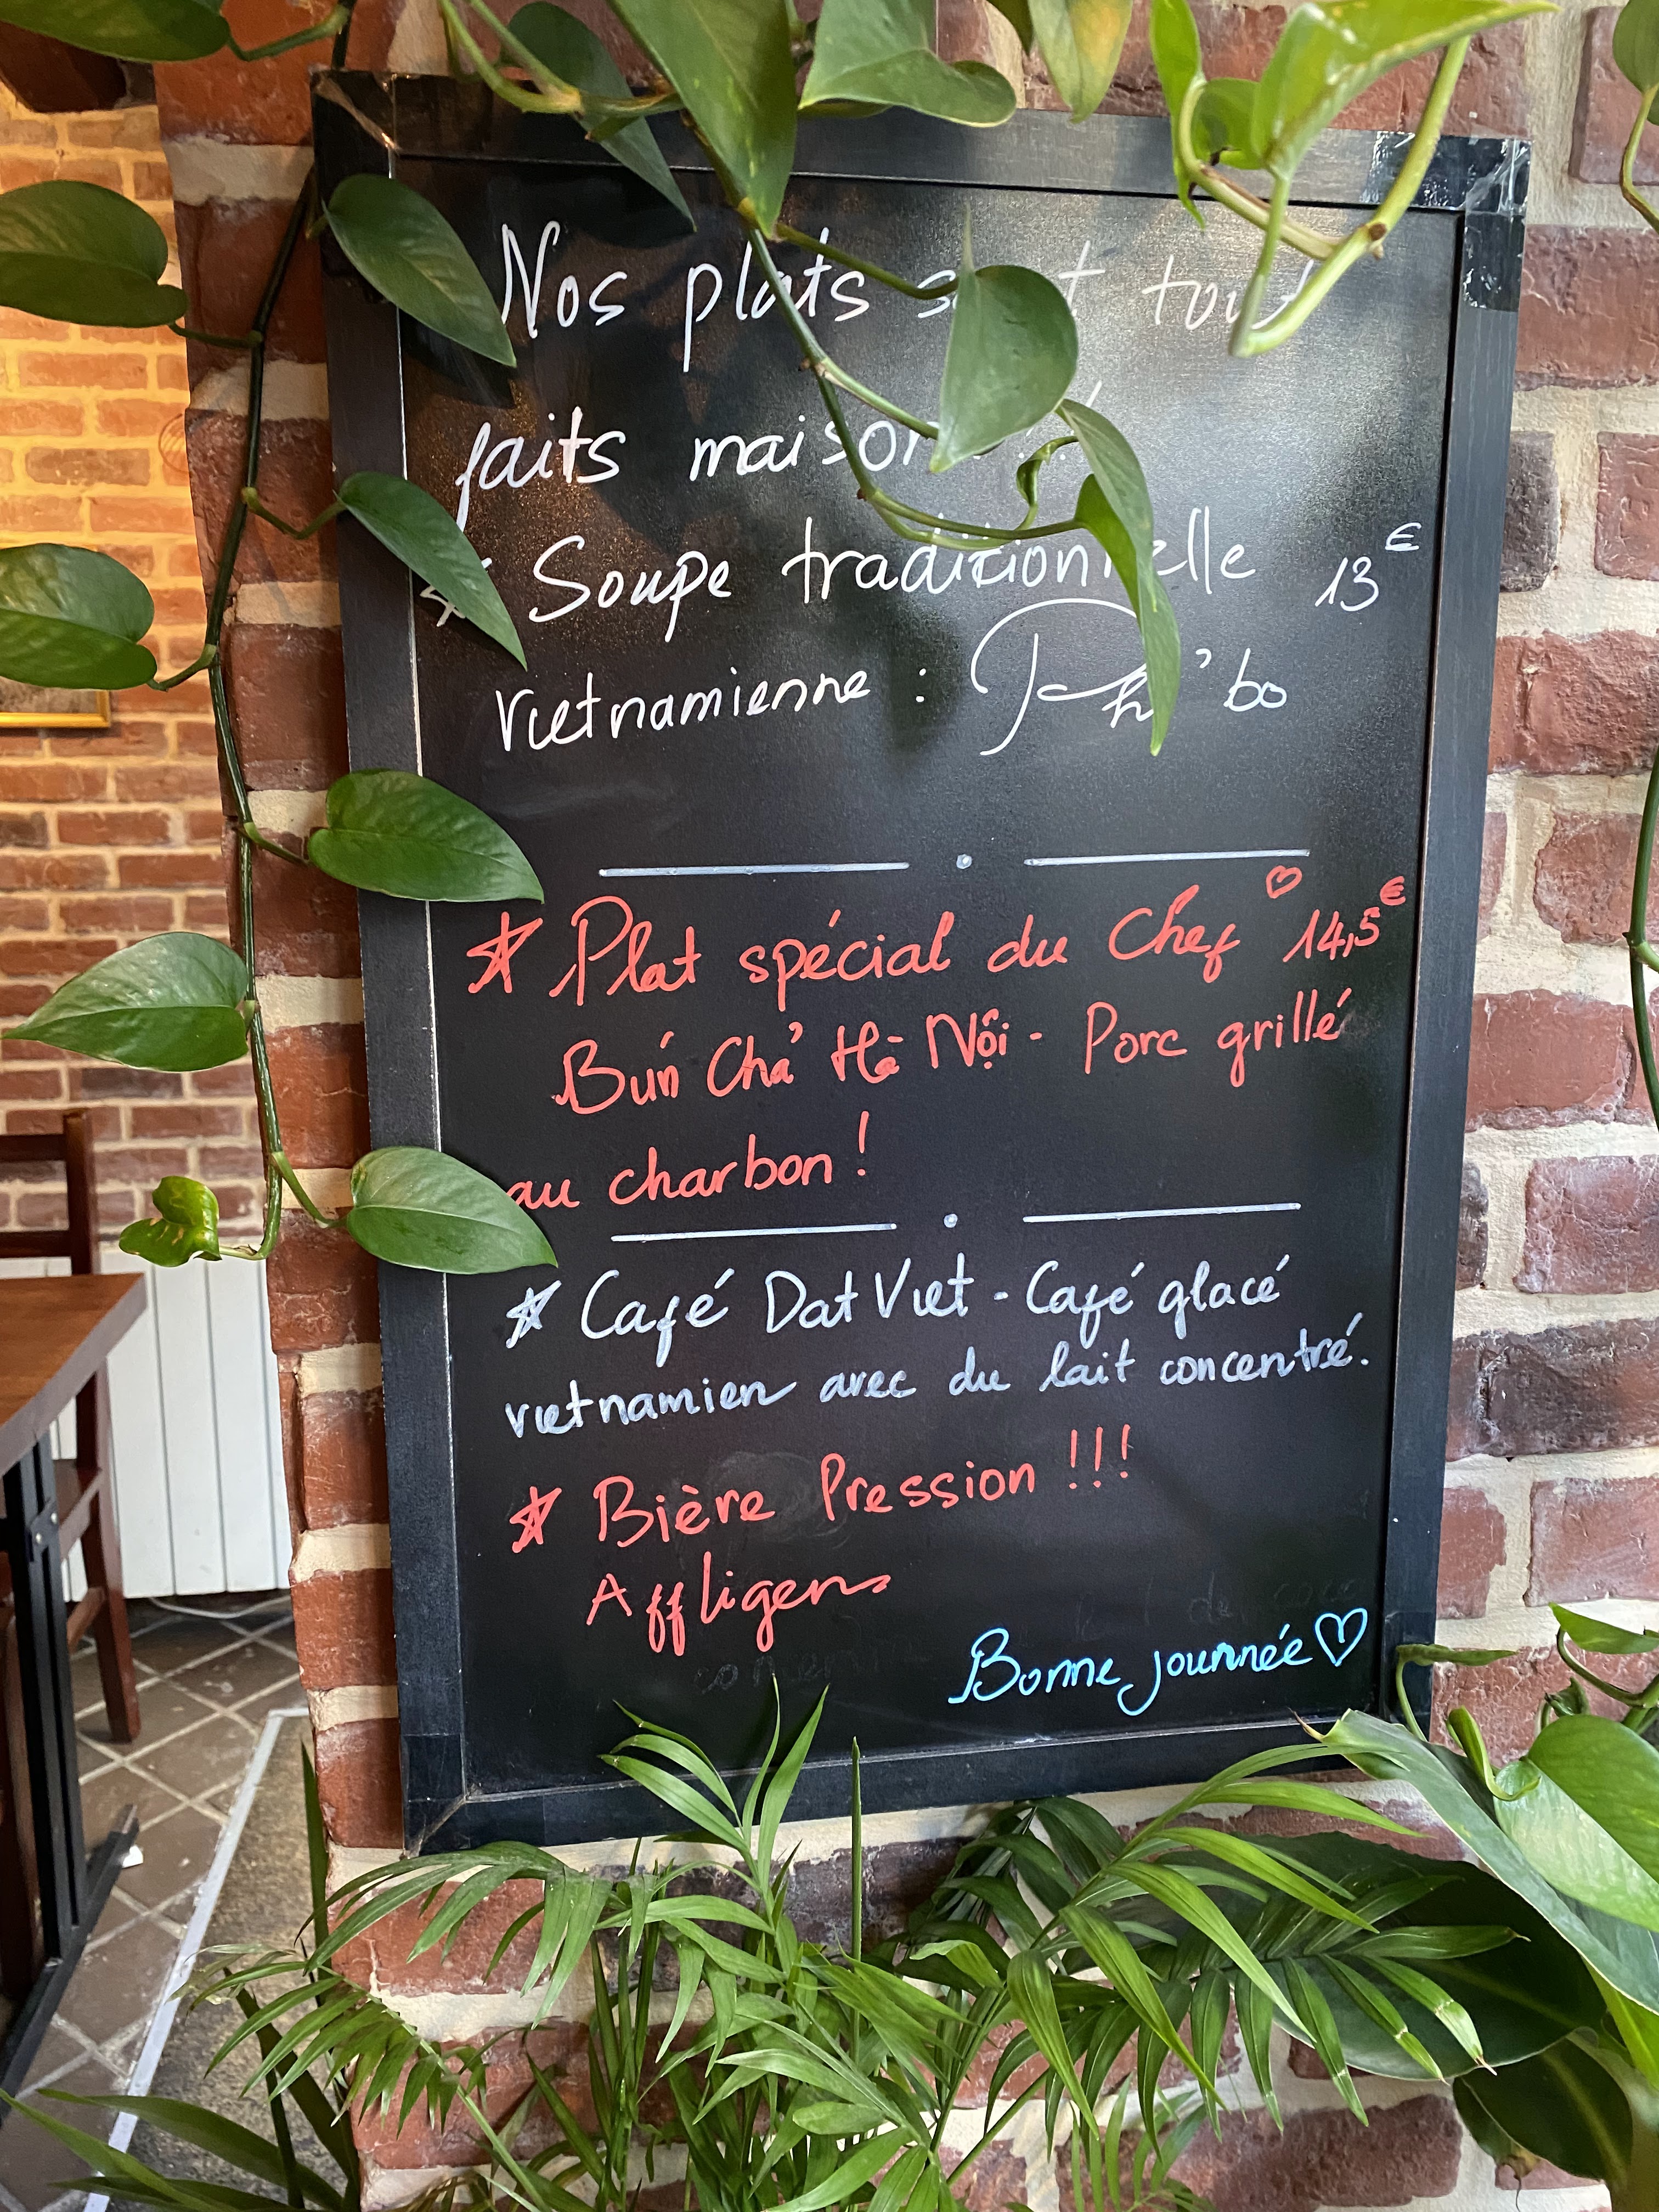 Nos plats sont tout
faits maison !!!
Soupe traditionnelle 13€
vietnamienne : Phở bo
Plat spécial du Chef ♡ 14,5€
Bún Chả Hà Nội - Porc grillé
au charbon !
Café Dat Viet - Café glacé
vietnamien avec du lait concentré.
Bière Pression !!!
Affligem
Bonne journnée ♡